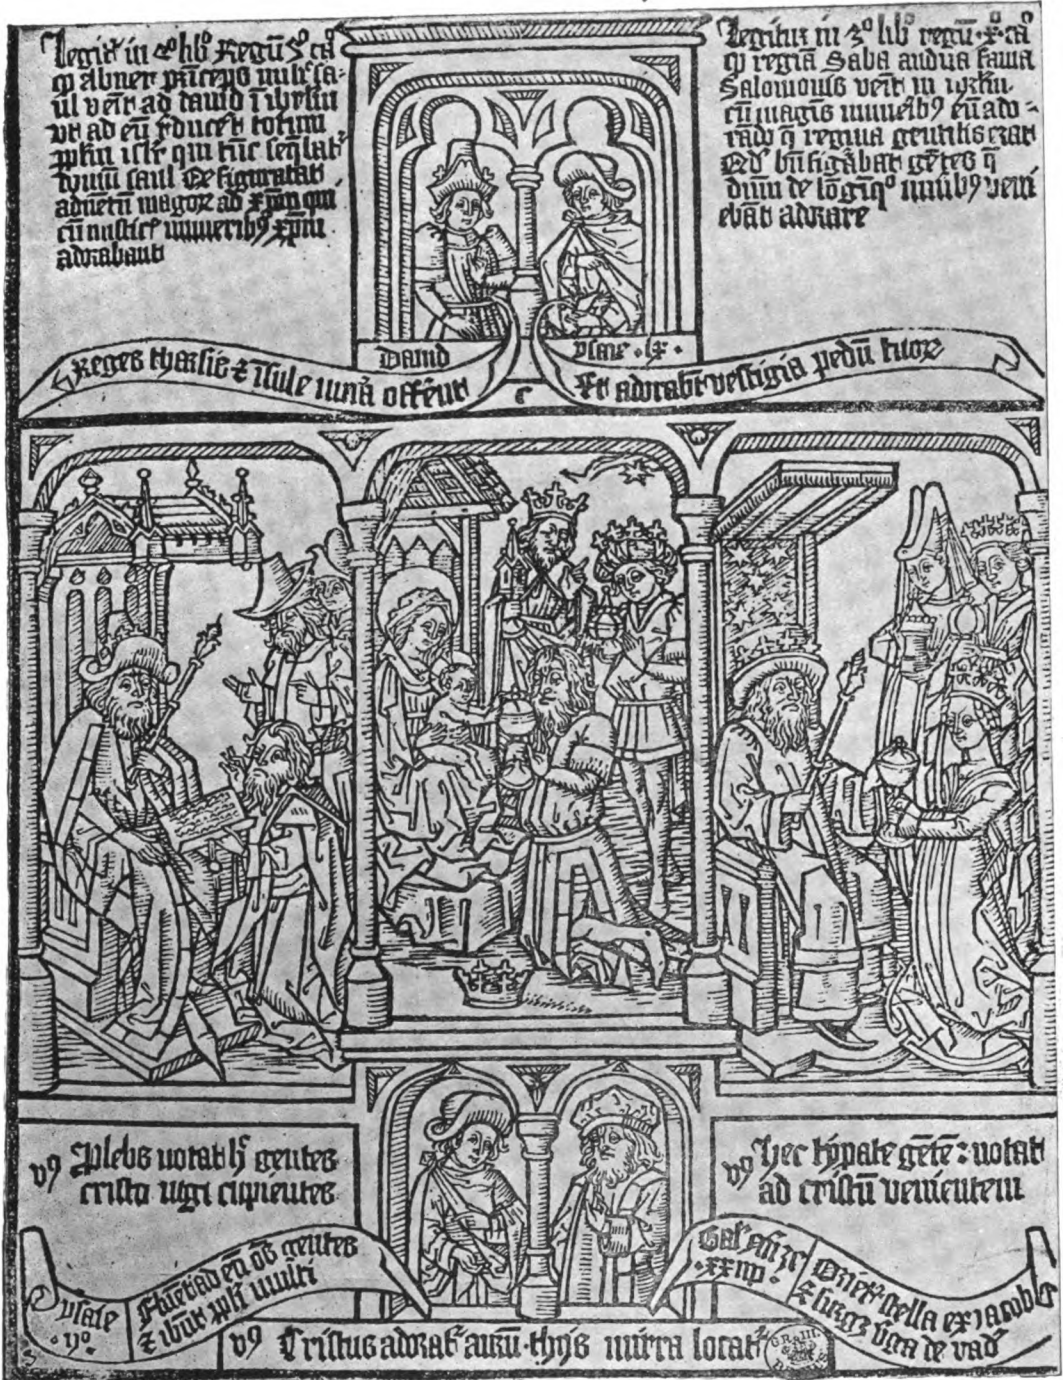 Legit̄ in 2º lib̄º Regū 3º cā
ꝙ abner prīceps milīs sa-
ul vēit ad dauid ī ihrl̄m
vt ad eū r̄duceret totum
ppl̄m isrl̄ qui tūc seq̄bat̄
domum saul Qd̄ figurabat
aduētū magoꝝ ad xp̄m qui
cū misticis muneribꝰ xp̄m
adorabant
Legitur in 3º lib̄º regū x̄ cā
ꝙ regīa Saba audita fama
Salomonis venit in ihrl̄m
cū magnis muneribꝰ eū ado-
rādo q̄ regina gentilis erat
Qd̄ bn̄ figūabat gētes q̄
dn̄m de lōgīqº munibꝰ veni
ebāt adorare
Dauid
ysaie .lx.
Reges tharsis ⁊ īsule mūa offēnt
e
Et adorabt vestigia pedū tuoꝝ
vꝰ Plebs notat h̄ gentes
cristo iūgi cupientes
vꝰ Hec typate gētē : notat
ad cristū venientem
ysaie
.ijº.
Fluēt ad eū oēs gentes
⁊ ibūt ppl̄i multi
.xxiiij.
Oriet̄ stella ex iacob
⁊ surget v̄ga de
vꝰ Cristus adorat̄ aurū thus mirra locat̄